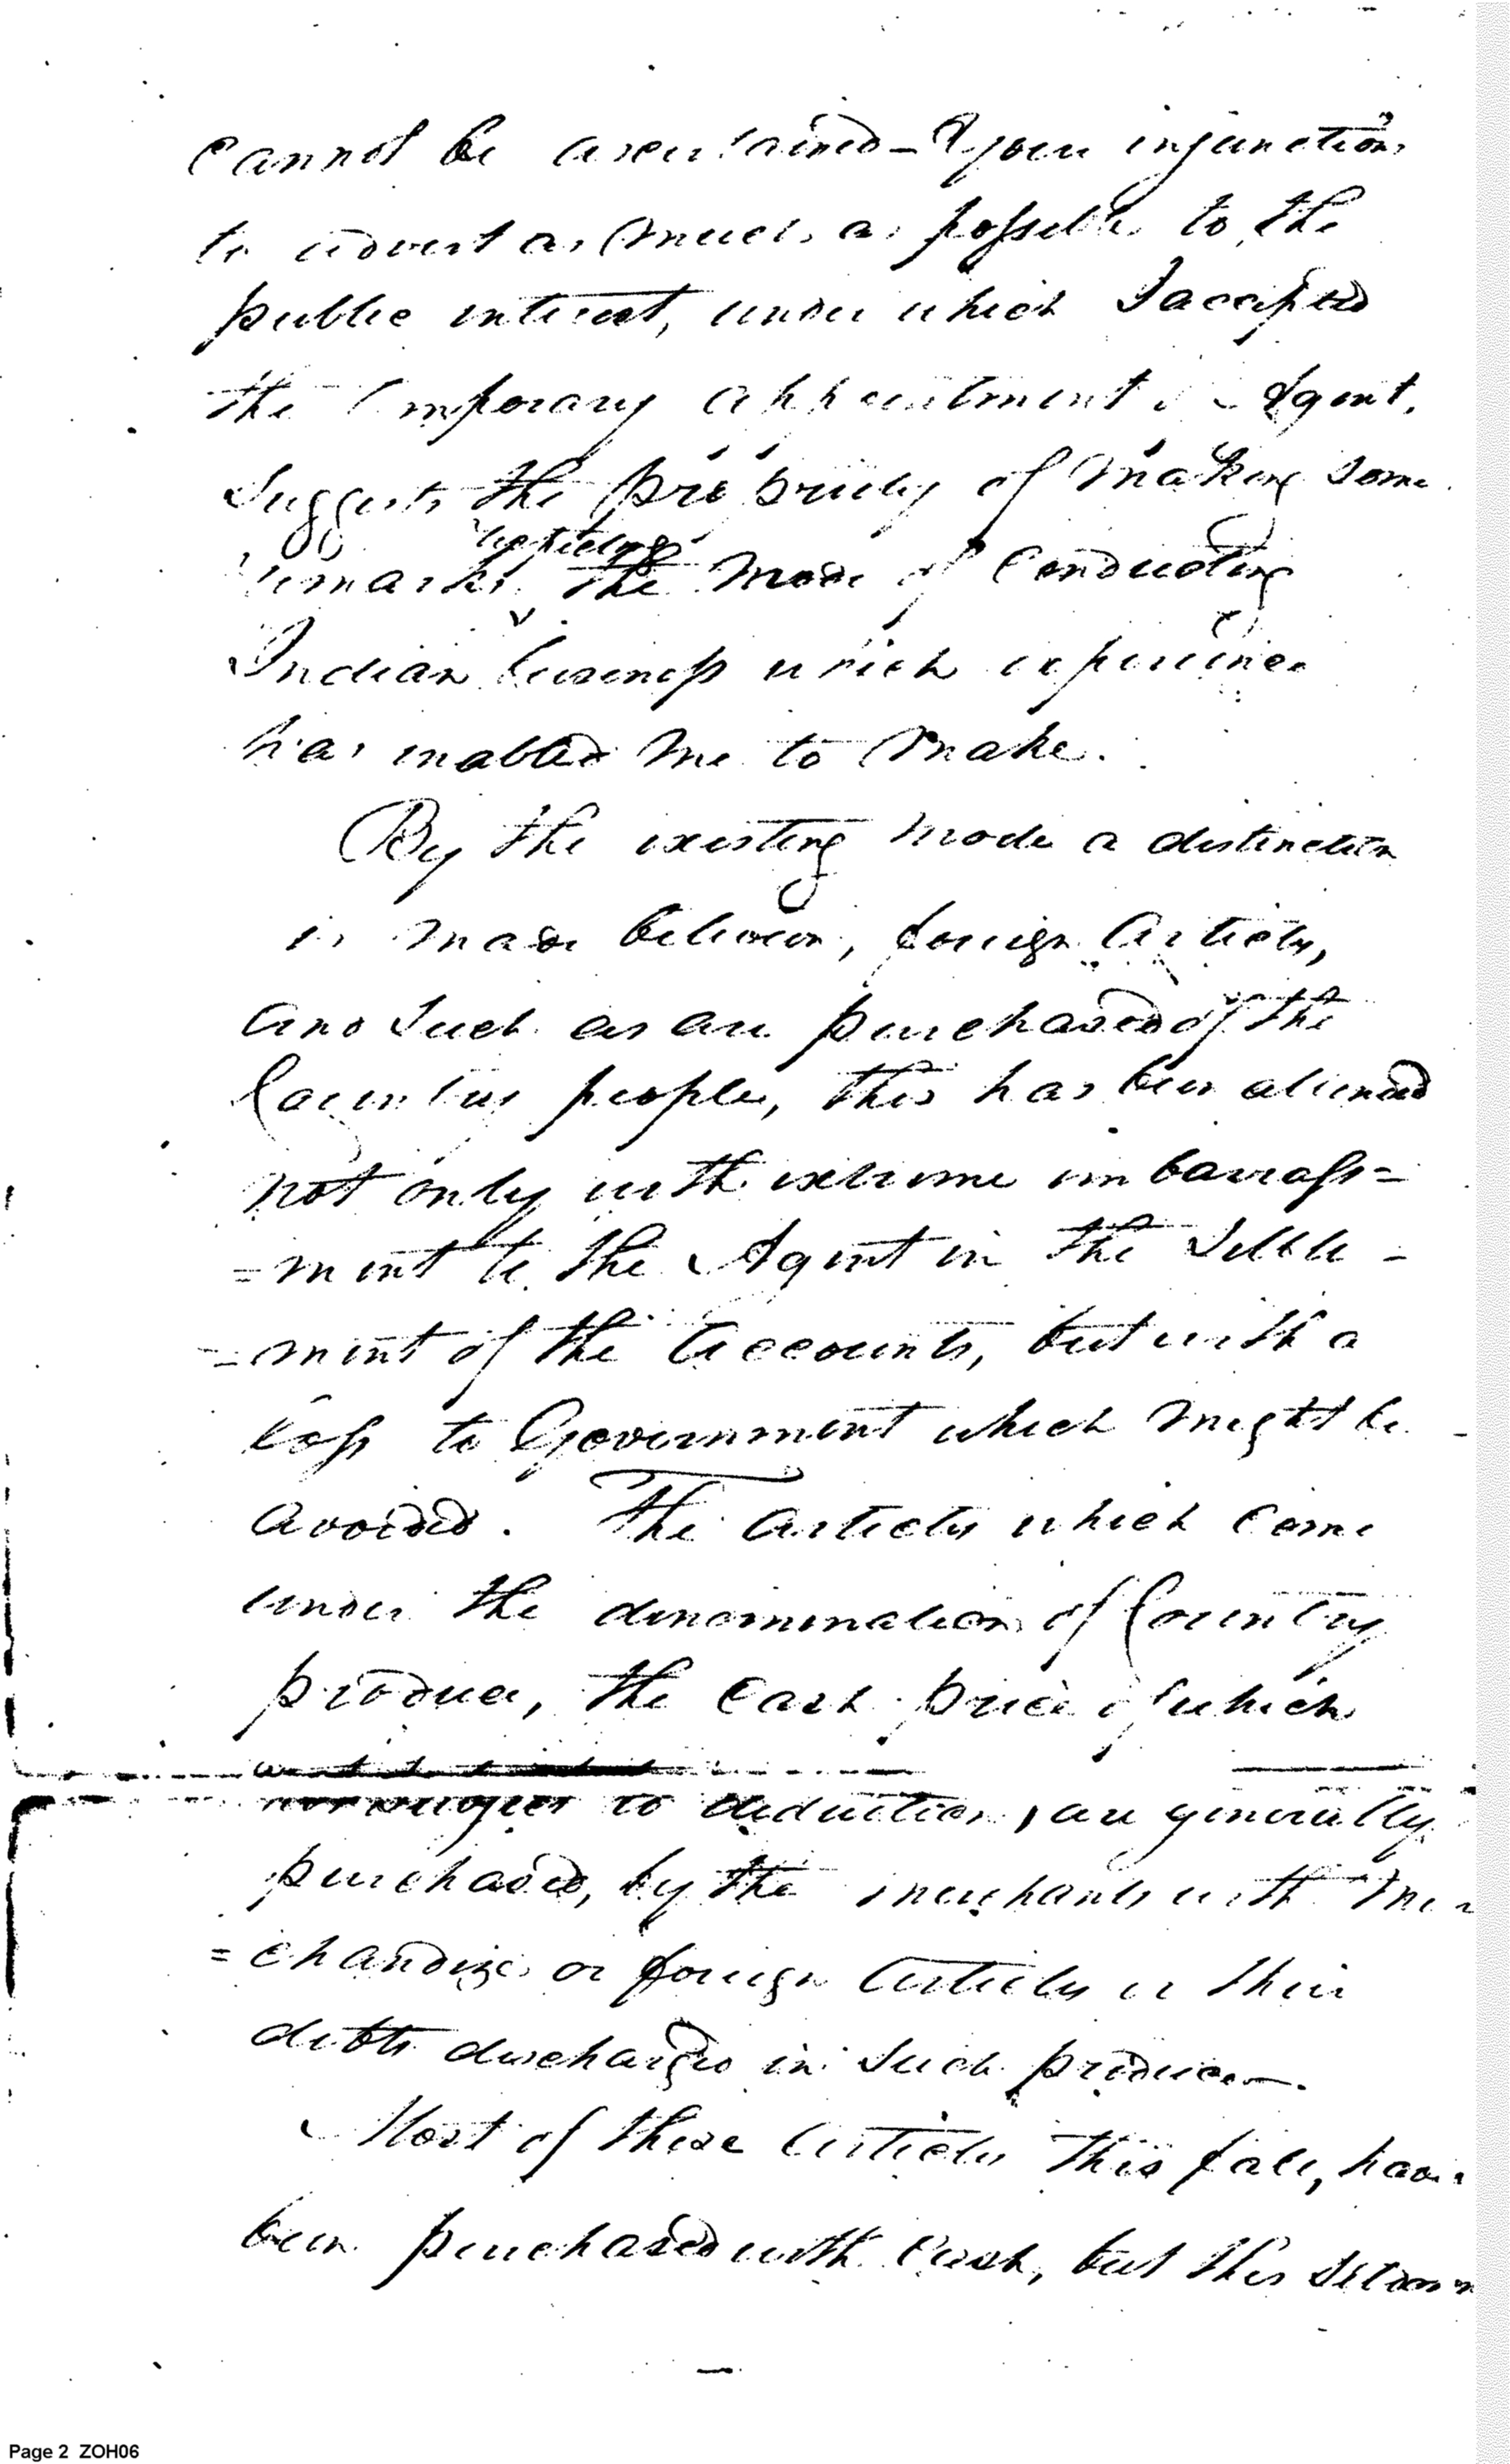 cannot be ascertained – Your injunctions
to advert as much as possible to the
public interest, under which I accepted
the temporary appointment Agent,
Suggests the propriety of making some
respecting
remarks the mode of Conducting
Indian business which experience
has enabled me to make.
By the existing mode a distinction
is made between, foreign Articles,
and Such as are purchased of the
Country people, this has been attended
not only with extreme embarrass=
=ment to the Agent in the Settle-
=ment of the Accounts, but with a
loss to Government which might be
avoided. The Articles which come
under the denomination of Country
produce, the Cash price of which
to deduction, are generally
purchased, by the merchants with mer
=chandize or foreign Articles or their
debts discharged in Such produce—.
Most of these Articles this fall, have
been purchased with Cash, but this Seldom
Page 2 ZOH06